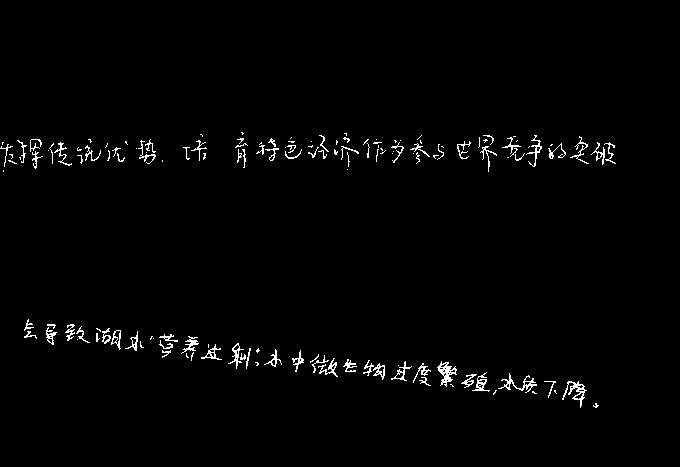 发挥传统优势，培育特色经济作为参与世界竞争的突破
会导致湖水"营养过剩"；水中微生物过度繁殖，水质下降。